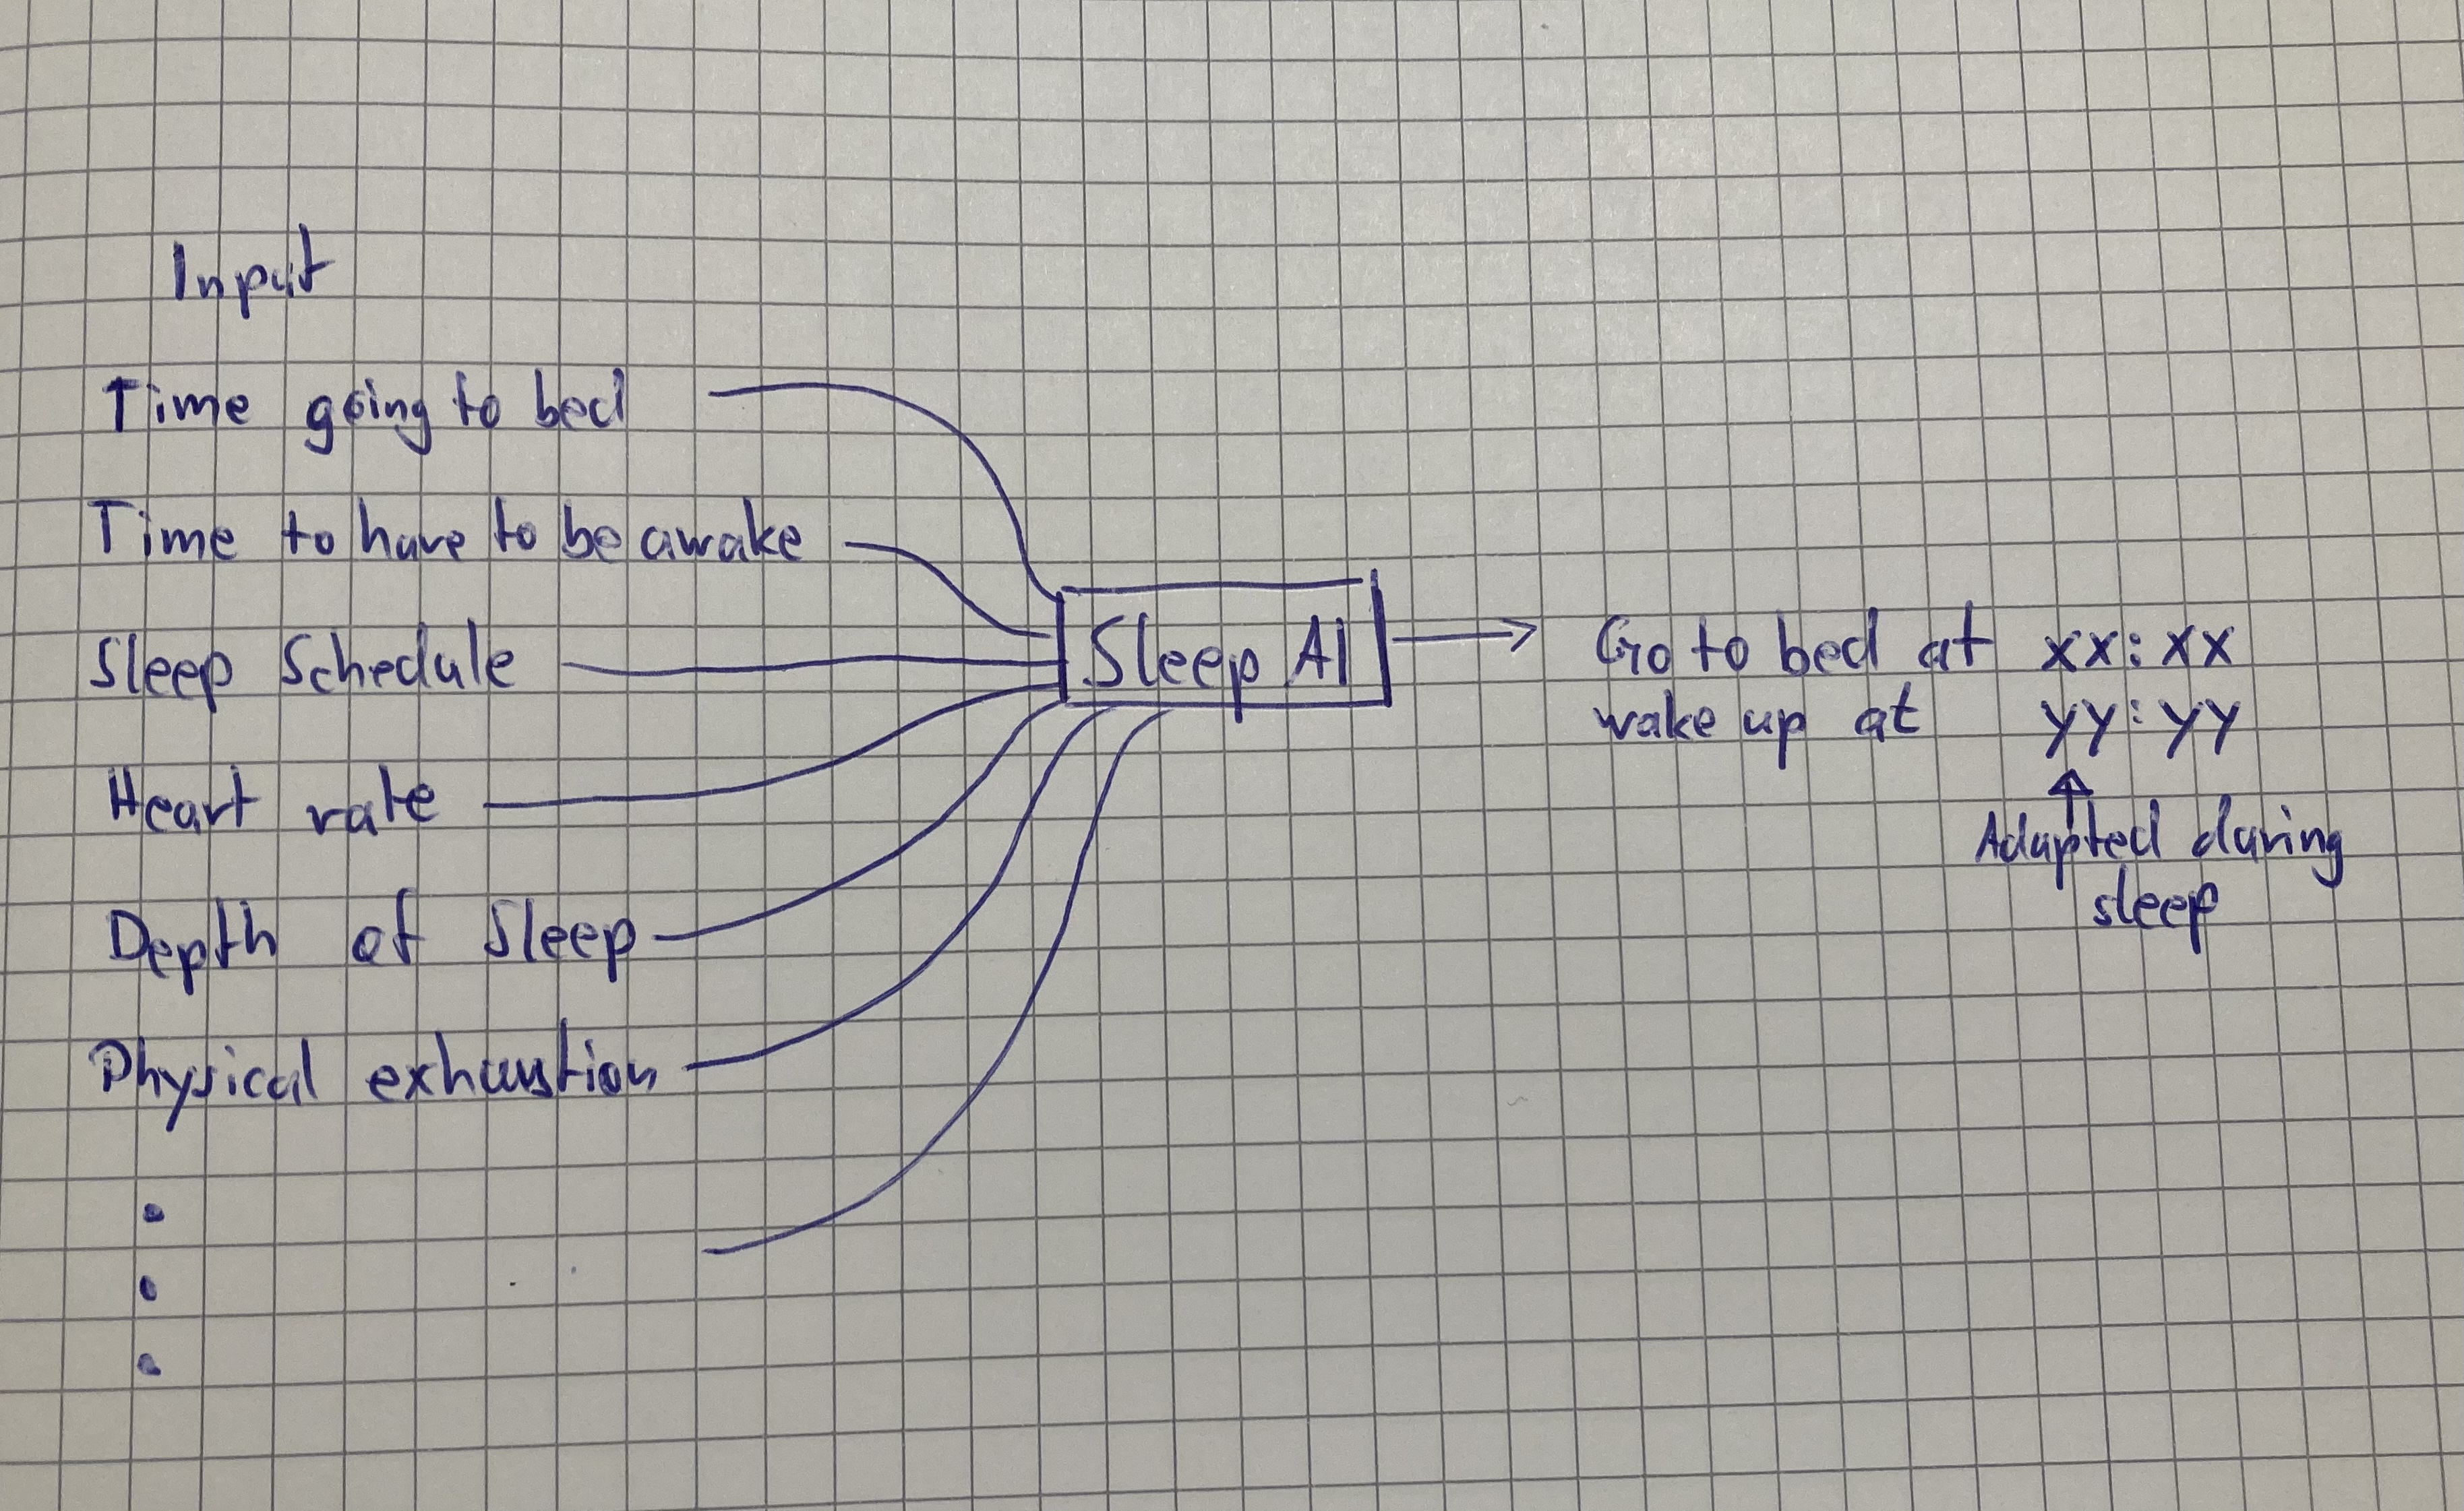 Input
Time going to bed
Time to have to be awake
Sleep Schedule
Heart rate
Depth of Sleep
Physical exhaustion
Sleep AI
Go to bed at xx:xx
wake up at yy:yy
Adapted during
sleep